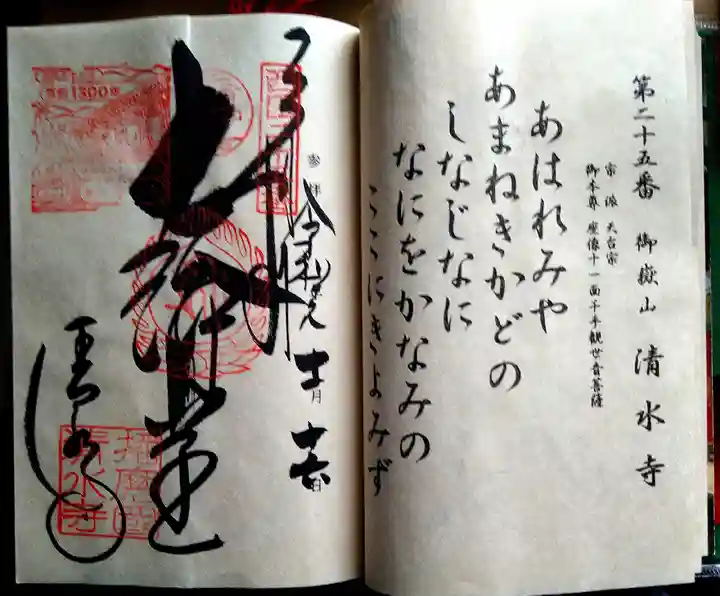 第二十五番 御嶽山 清水寺
宗派 天台宗
御本尊 座像十一面千手観世音菩薩
あはれみや
あまねきかどの
しなじなに
なにをかなみの
ここにきよみず
参拝
月
日
大講堂
清水寺
1300年
播磨国
清水寺